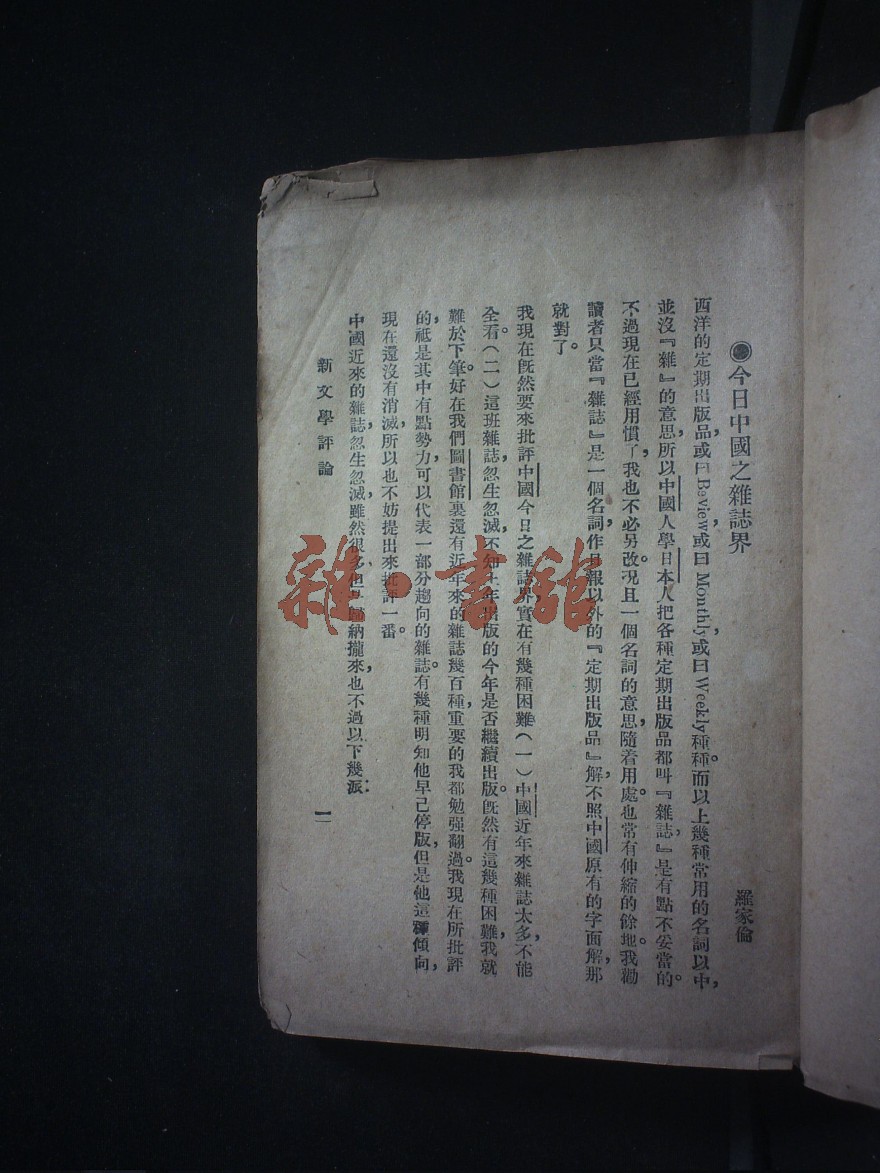 ●今日中國之雜誌界
羅家倫
西洋的定期出版品，或曰Review，或曰Monthly，或曰Weekly種種。而以上幾種常用的名詞以中，
並沒『雜』的意思，所以中國人學日本人把各種定期出版品都叫『雜誌』，是有點不妥當的。
不過現在已經用慣了，我也不必另改。况且一個名詞的意思，隨着用處。也常有伸縮的餘地。我勸
讀者只當『雜誌』是一個名詞，作日報以外的『定期出版品』解，不照中國原有的字面解，那
就對了。
我現在旣然要來批評中國今日之雜誌界，實在有幾種困難，（一）中國近年來雜誌太多，不能
全看。（二）這班雜誌，忽生忽滅，不知上年出版的今年是否繼續出版。旣然有這幾種困難，我就
難於下筆。好在我們圖書館裏還有近年來的雜誌幾百種，重要的我都勉强翻過。我現在所批評
的，祗是其中有點勢力，可以代表一部分趨向的雜誌。有幾種明知他早已停版，但是他這種傾向，
現在還沒有消滅，所以也不妨提出來批評一番。
中國近來的雜誌，忽生忽滅，雖然很多，但是歸納攏來，也不過以下幾派：
新文學評論
一
雜·書館